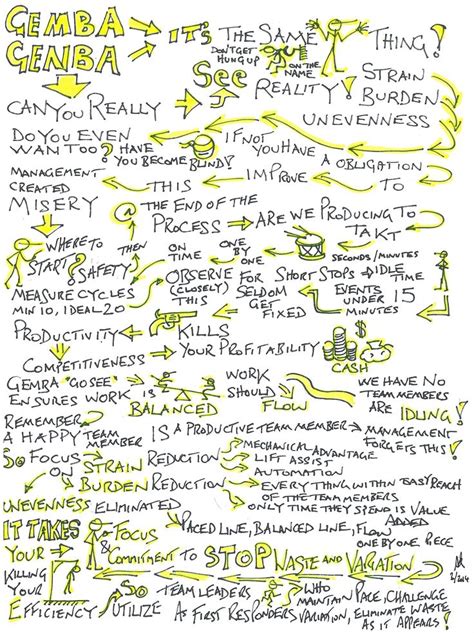 GEMBA → IT'S THE SAME THING!
GENBA
DON'T GET HUNG UP ON THE NAME
CAN YOU REALLY → SEE REALITY! STRAIN
BURDEN
UNEVENNESS
DO YOU EVEN WANT TOO? HAVE YOU BECOME BLIND! IF NOT YOU HAVE A OBLIGATION
MANAGEMENT CREATED ← THIS ← IMPROVE ← TO
MISERY
@ THE END OF THE PROCESS → ARE WE PRODUCING TO TAKT
WHERE TO START? THEN SAFETY ON TIME ONE BY ONE SECONDS/MINUTES
MEASURE CYCLES MIN 10, IDEAL 20 OBSERVE (CLOSELY) THIS FOR SHORT STOPS → IDLE TIME
SELDOM GET FIXED EVENTS UNDER 15 MINUTES
PRODUCTIVITY ← KILLS
COMPETITIVENESS → YOUR PROFITABILITY CASH
GEMBA "GO SEE" ENSURES WORK IS BALANCED WORK SHOULD FLOW WE HAVE NO TEAM MEMBERS ARE IDLING!
REMEMBER A HAPPY TEAM MEMBER IS A PRODUCTIVE TEAM MEMBER → MANAGEMENT FORGETS THIS!
SO FOCUS ON STRAIN REDUCTION MECHANICAL ADVANTAGE
LIFT ASSIST
AUTOMATION
BURDEN REDUCTION EVERYTHING WITHIN EASY REACH OF THE TEAM MEMBERS
UNEVENNESS ELIMINATED ONLY TIME THEY SPEND IS VALUE ADDED
PACED LINE, BALANCED LINE, FLOW ONE BY ONE PIECE
IT TAKES YOUR FOCUS & COMMITMENT TO STOP WASTE AND VARIATION
2/2014
KILLING YOUR EFFICIENCY SO UTILIZE TEAM LEADERS AS FIRST RESPONDERS WHO MAINTAIN PACE, CHALLENGE VARIATION, ELIMINATE WASTE AS IT APPEARS!